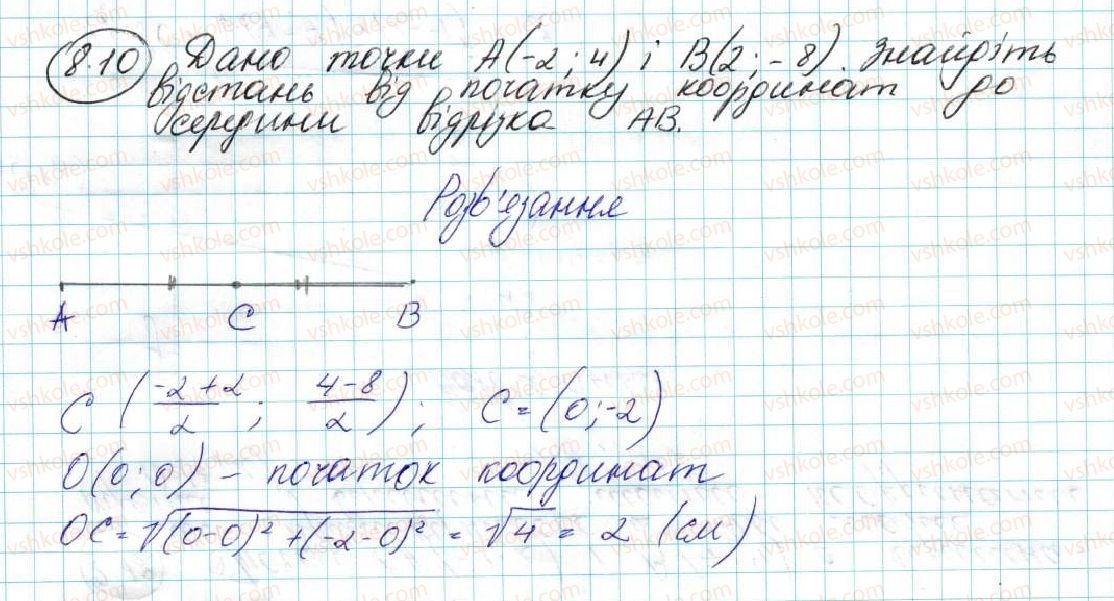 8.10 Дано точки A(-2; 4) і B(2; -8). Знайдіть
відстань від початку координат до
середини відрізка AB.
Розв'язання
A C B
C (\frac{-2+2}{2}; \frac{4-8}{2}); C = (0; -2)
O(0; 0) - початок координат
OC = √((0-0)² + (-2-0)²) = √4 = 2 (см)